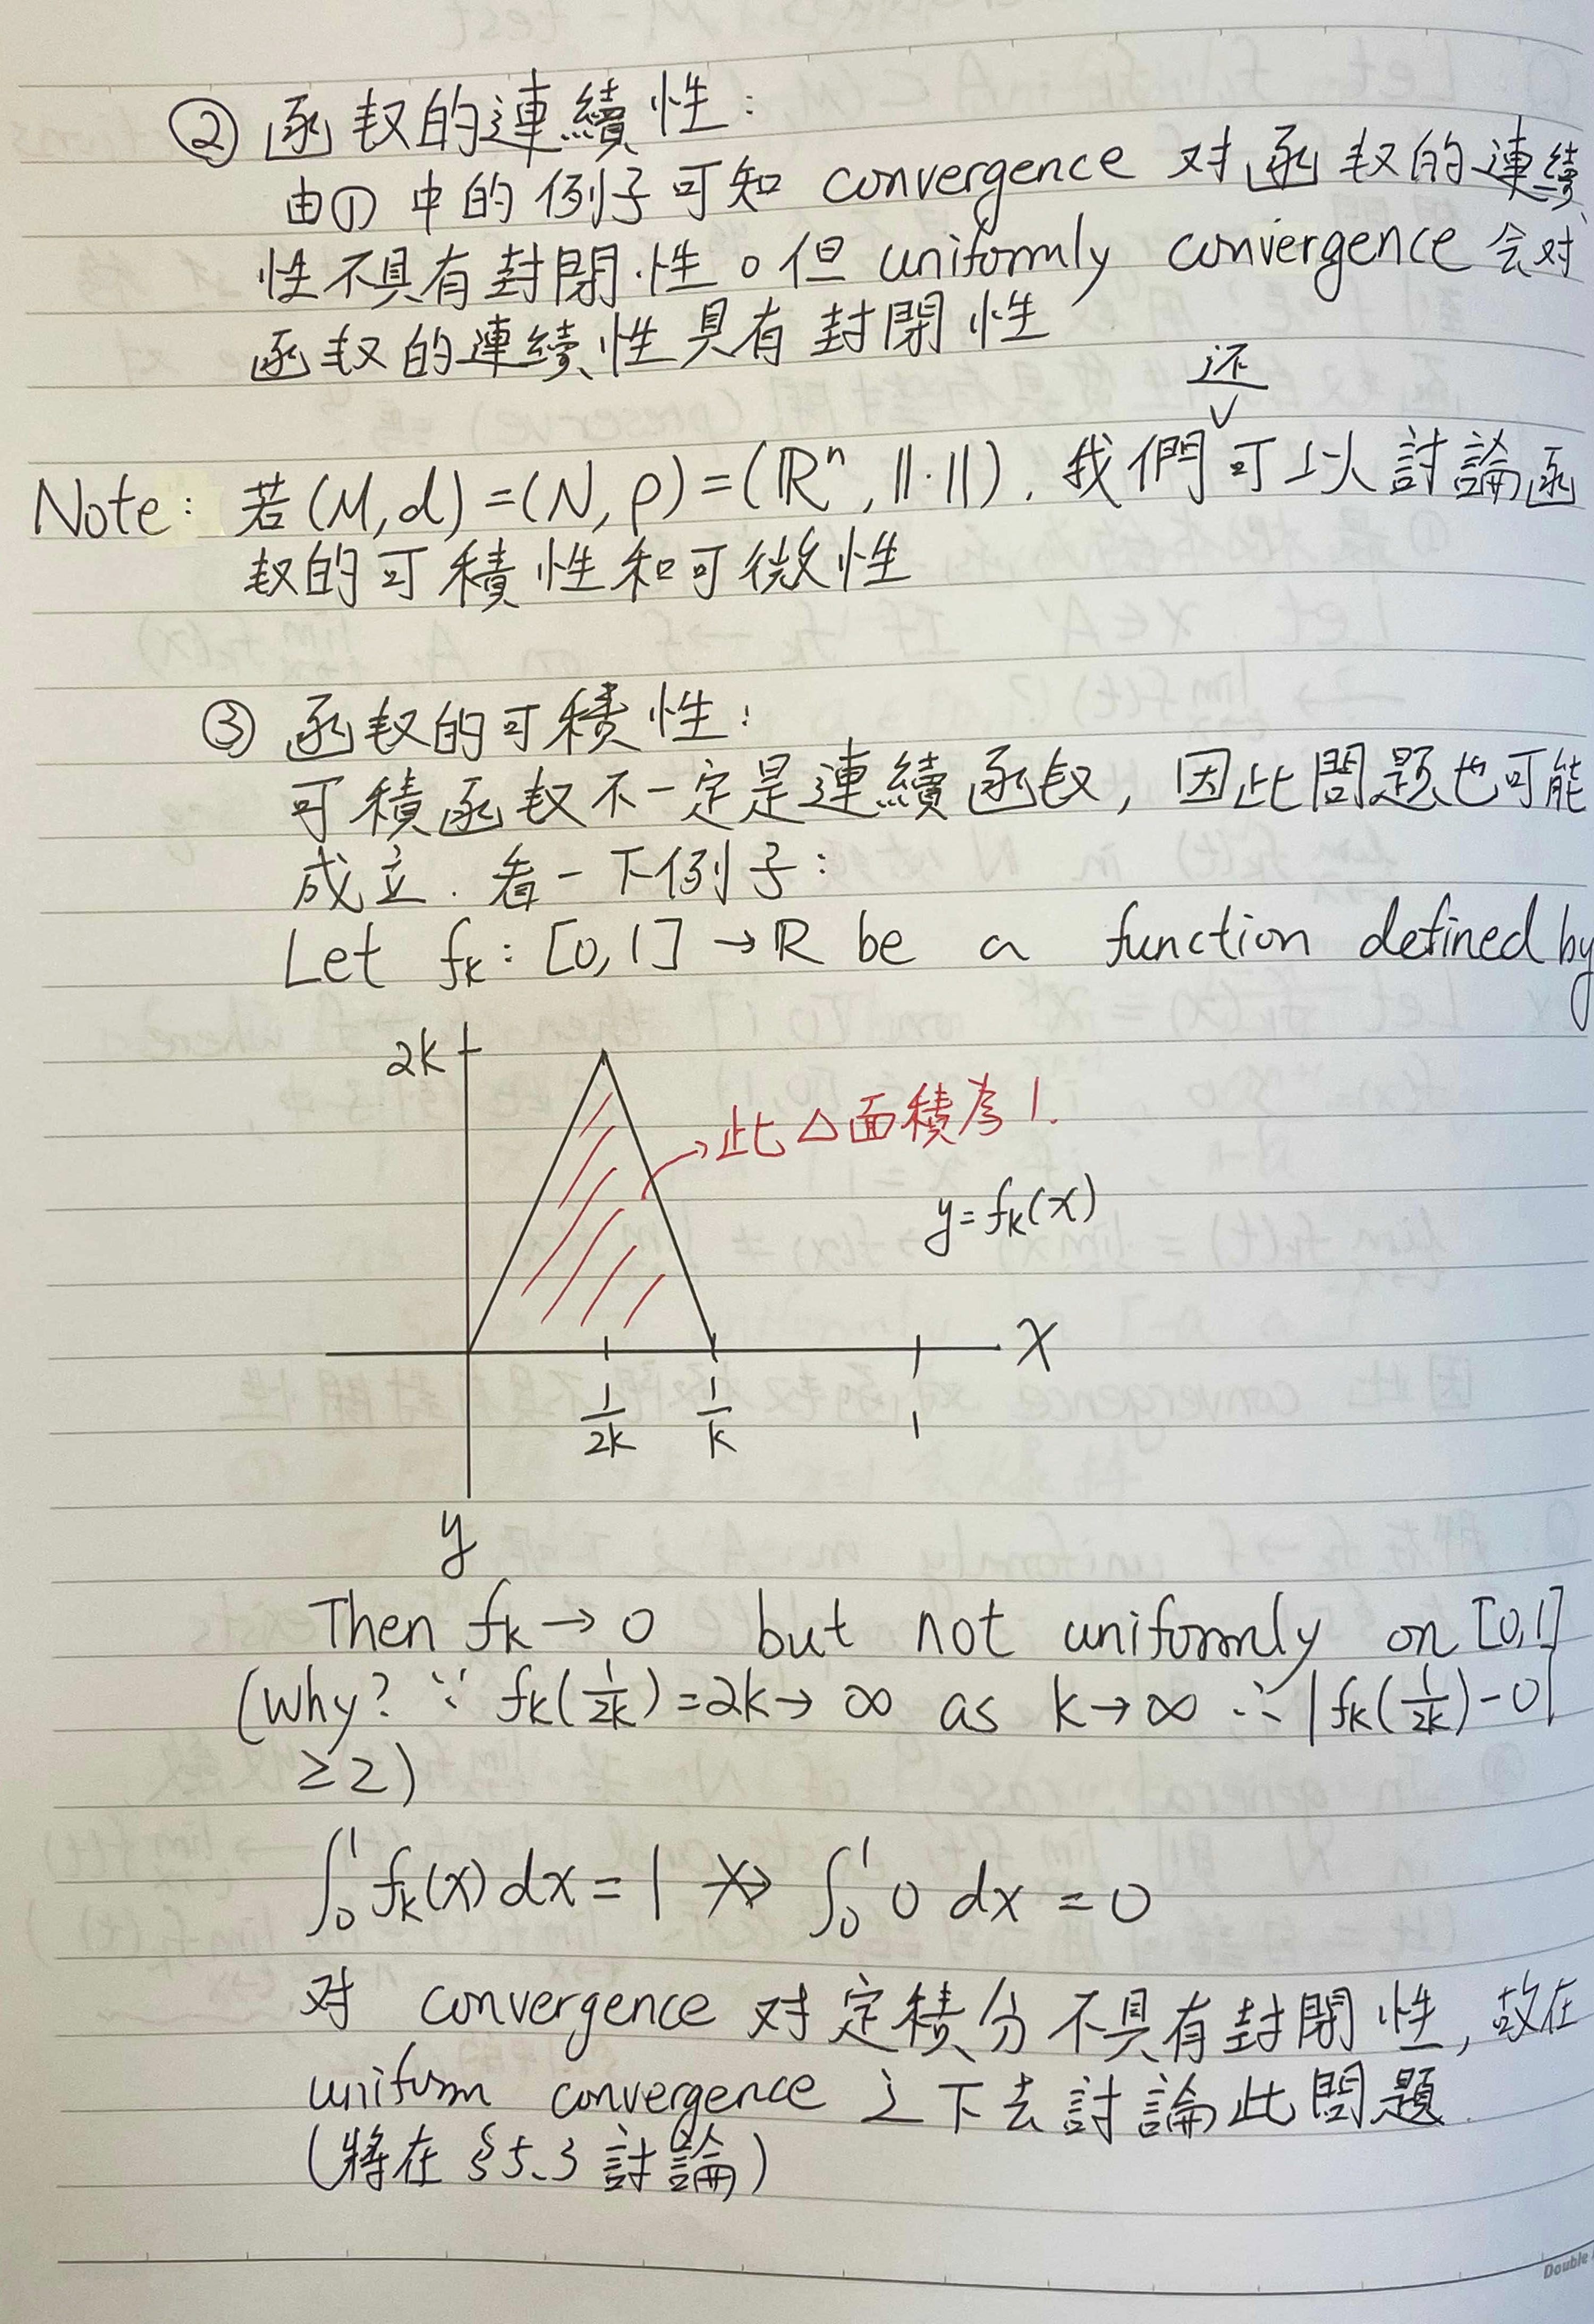 ② 函数的連續性：
由① 中的例子可知 convergence 对函数的連續
性不具有封閉性。但 uniformly convergence 会对
函数的連續性具有封閉性
还
Note: 若(M,d)=(N,ρ)=(ℝⁿ,‖·‖), 我們可以討論函
数的可積性和可微性
③ 函数的可積性：
可積函数不一定是連續函数, 因此問題也可能
成立. 看一下例子：
Let fₖ: [0,1]→ℝ be a function defined by
2k
此△面積為1.
y=fₖ(x)
x
1/2k 1/k 1
y
Then fₖ→0 but not uniformly on [0,1]
(Why? ∵ fₖ(1/2k)=2k→∞ as k→∞ ∴|fₖ(1/2k)-0|
≥2)
∫₀¹fₖ(x)dx=1 ↛ ∫₀¹ 0 dx = 0
对 convergence 对定積分不具有封閉性, 故在
uniform convergence 之下去討論此問題.
(將在 §5.3 討論)
Double